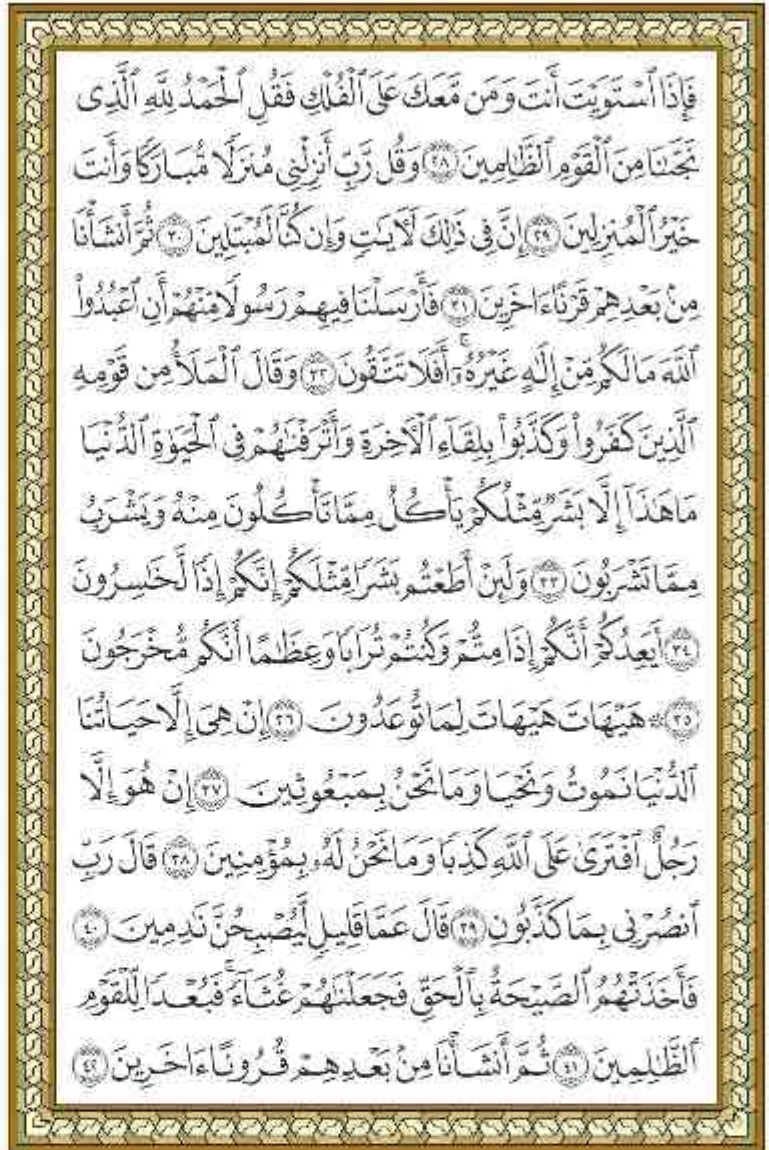 فَإِذَا ٱسْتَوَيْتَ أَنتَ وَمَن مَّعَكَ عَلَى ٱلْفُلْكِ فَقُلِ ٱلْحَمْدُ لِلَّهِ ٱلَّذِى
نَجَّىٰنَا مِنَ ٱلْقَوْمِ ٱلظَّـٰلِمِينَ ٢٨ وَقُل رَّبِّ أَنزِلْنِى مُنزَلًا مُّبَارَكًا وَأَنتَ
خَيْرُ ٱلْمُنزِلِينَ ٢٩ إِنَّ فِى ذَٰلِكَ لَـَٔايَـٰتٍ وَإِن كُنَّا لَمُبْتَلِينَ ٣٠ ثُمَّ أَنشَأْنَا
مِنۢ بَعْدِهِمْ قَرْنًا ءَاخَرِينَ ٣١ فَأَرْسَلْنَا فِيهِمْ رَسُولًا مِّنْهُمْ أَنِ ٱعْبُدُوا۟
ٱللَّهَ مَا لَكُم مِّنْ إِلَـٰهٍ غَيْرُهُۥٓ ۚ أَفَلَا تَتَّقُونَ ٣٢ وَقَالَ ٱلْمَلَأُ مِن قَوْمِهِ
ٱلَّذِينَ كَفَرُوا۟ وَكَذَّبُوا۟ بِلِقَآءِ ٱلْـَٔاخِرَةِ وَأَتْرَفْنَـٰهُمْ فِى ٱلْحَيَوٰةِ ٱلدُّنْيَا
مَا هَـٰذَآ إِلَّا بَشَرٌ مِّثْلُكُمْ يَأْكُلُ مِمَّا تَأْكُلُونَ مِنْهُ وَيَشْرَبُ
مِمَّا تَشْرَبُونَ ٣٣ وَلَئِنْ أَطَعْتُم بَشَرًا مِّثْلَكُمْ إِنَّكُمْ إِذًا لَّخَـٰسِرُونَ
٣٤ أَيَعِدُكُمْ أَنَّكُمْ إِذَا مِتُّمْ وَكُنتُمْ تُرَابًا وَعِظَـٰمًا أَنَّكُم مُّخْرَجُونَ
٣٥ ۞ هَيْهَاتَ هَيْهَاتَ لِمَا تُوعَدُونَ ٣٦ إِنْ هِىَ إِلَّا حَيَاتُنَا
ٱلدُّنْيَا نَمُوتُ وَنَحْيَا وَمَا نَحْنُ بِمَبْعُوثِينَ ٣٧ إِنْ هُوَ إِلَّا
رَجُلٌ ٱفْتَرَىٰ عَلَى ٱللَّهِ كَذِبًا وَمَا نَحْنُ لَهُۥ بِمُؤْمِنِينَ ٣٨ قَالَ رَبِّ
ٱنصُرْنِى بِمَا كَذَّبُونِ ٣٩ قَالَ عَمَّا قَلِيلٍ لَّيُصْبِحُنَّ نَـٰدِمِينَ ٤٠
فَأَخَذَتْهُمُ ٱلصَّيْحَةُ بِٱلْحَقِّ فَجَعَلْنَـٰهُمْ غُثَآءً ۚ فَبُعْدًا لِّلْقَوْمِ
ٱلظَّـٰلِمِينَ ٤١ ثُمَّ أَنشَأْنَا مِنۢ بَعْدِهِمْ قُرُونًا ءَاخَرِينَ ٤٢